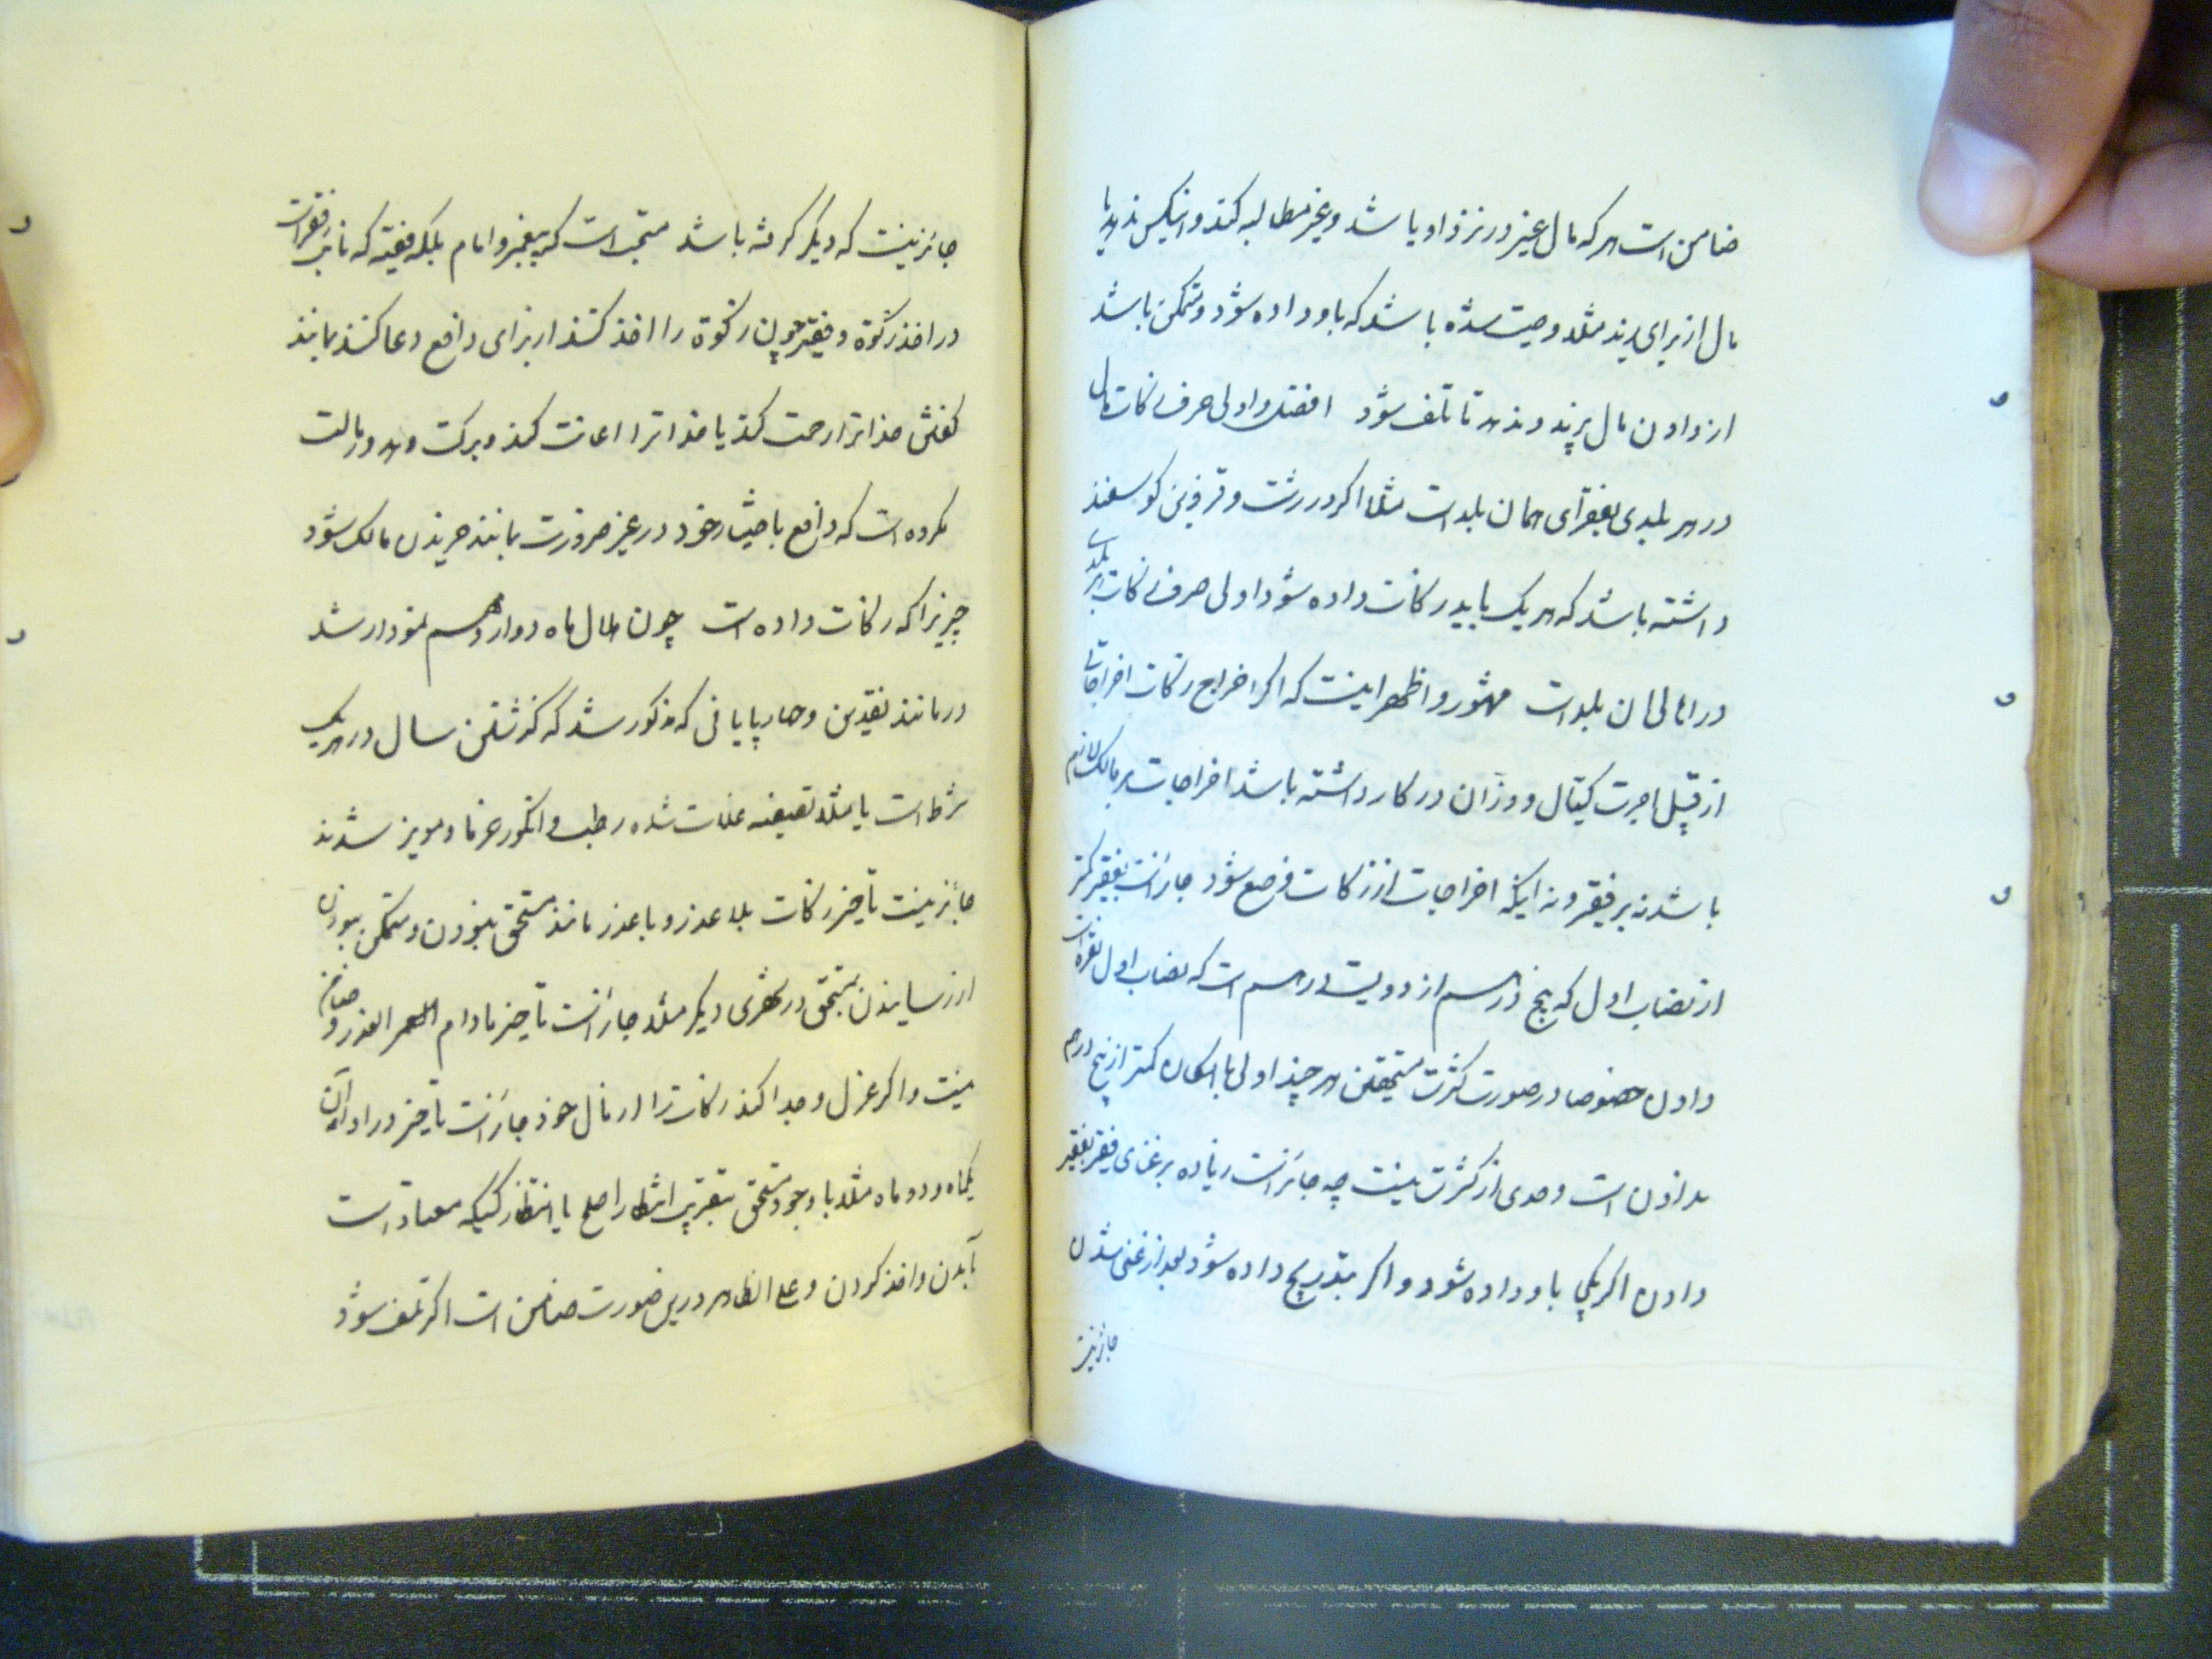 ضامن است هر که مال غیر در نزد او باشد و غیر مطالبه کند و اینکس ندهد یا
مال از برای زید مثلا وصیت شده باشد که باو داده شود و متمکن باشد
از دادن مال بزید و ندهد تا تلف شود افضل و اولی صرف زکات مال
در هر بلدی بفقرای همان بلد است مثلا اگر در رشت و قزوین گوسفند
داشته باشد که هر یک باید زکات داده شود اولی صرف زکات هر بلدی
در اهالی ان بلد است مشهور و اظهر اینست که اگر اخراج زکات اخراجاتی
از قبیل اجرت کیّال و وزّان در کار داشته باشد اخراجات بر مالک لازم
باشد نه بر فقیر و نه اینکه اخراجات از زکات وضع شود جائز است بفقیر کمتر
از نصاب اول که پنج درهم از دویست درهم است که نصاب اول نقره است
دادن خصوصا در صورت کثرت مستحقین هر چند اولی با امکان کمتر از پنج درهم
ندادن است و حدی از کثرت نیست چه جائز است زیاده بر غنای فقیر بفقیر
دادن اگر یکجا باو داده شود و اگر بتدریج داده شود بعد از غنی شدن
جائز نیست
جائز نیست که دیگر گرفته باشد مستحب است که پیغمبر و امام بلکه فقیه که نائب فقرا است
در اخذ زکوة و فقیر چون زکوة را اخذ کنند از برای دافع دعا کنند مانند
گفتن خدا ترا رحمت کند یا خدا ترا اعانت کند و برکت دهد در مالت
مکروه است که دافع باختیار خود در غیر ضرورت مانند خریدن مالک شود
چیزیرا که زکات داده است چون هلال ماه دوازدهم نمودار شد
در مانند نقدین و چارپایانی که مذکور شد که گذشتن سال در هر یک
شرط است یا مثلا تصفیه غلات شده رطب و انگور خرما و مویز شدند
جائز نیست تأخیر زکات بلا عذر و با عذر مانند مستحق نبودن و متمکن نبودن
از رسانیدن بمستحق در شهری دیگر مثلا جائز است تأخیر مادام العذر و ضامن
نیست و اگر عزل و جدا کند زکات را از مال خود جائز است تأخیر در ادای آن
یکماه و دو ماه مثلا با وجود مستحق بتقریب انتظار اصلح یا انتظار کسیکه معتاد است
بآمدن و اخذ کردن و علی الظاهر درین صورت ضامن است اگر تلف شود